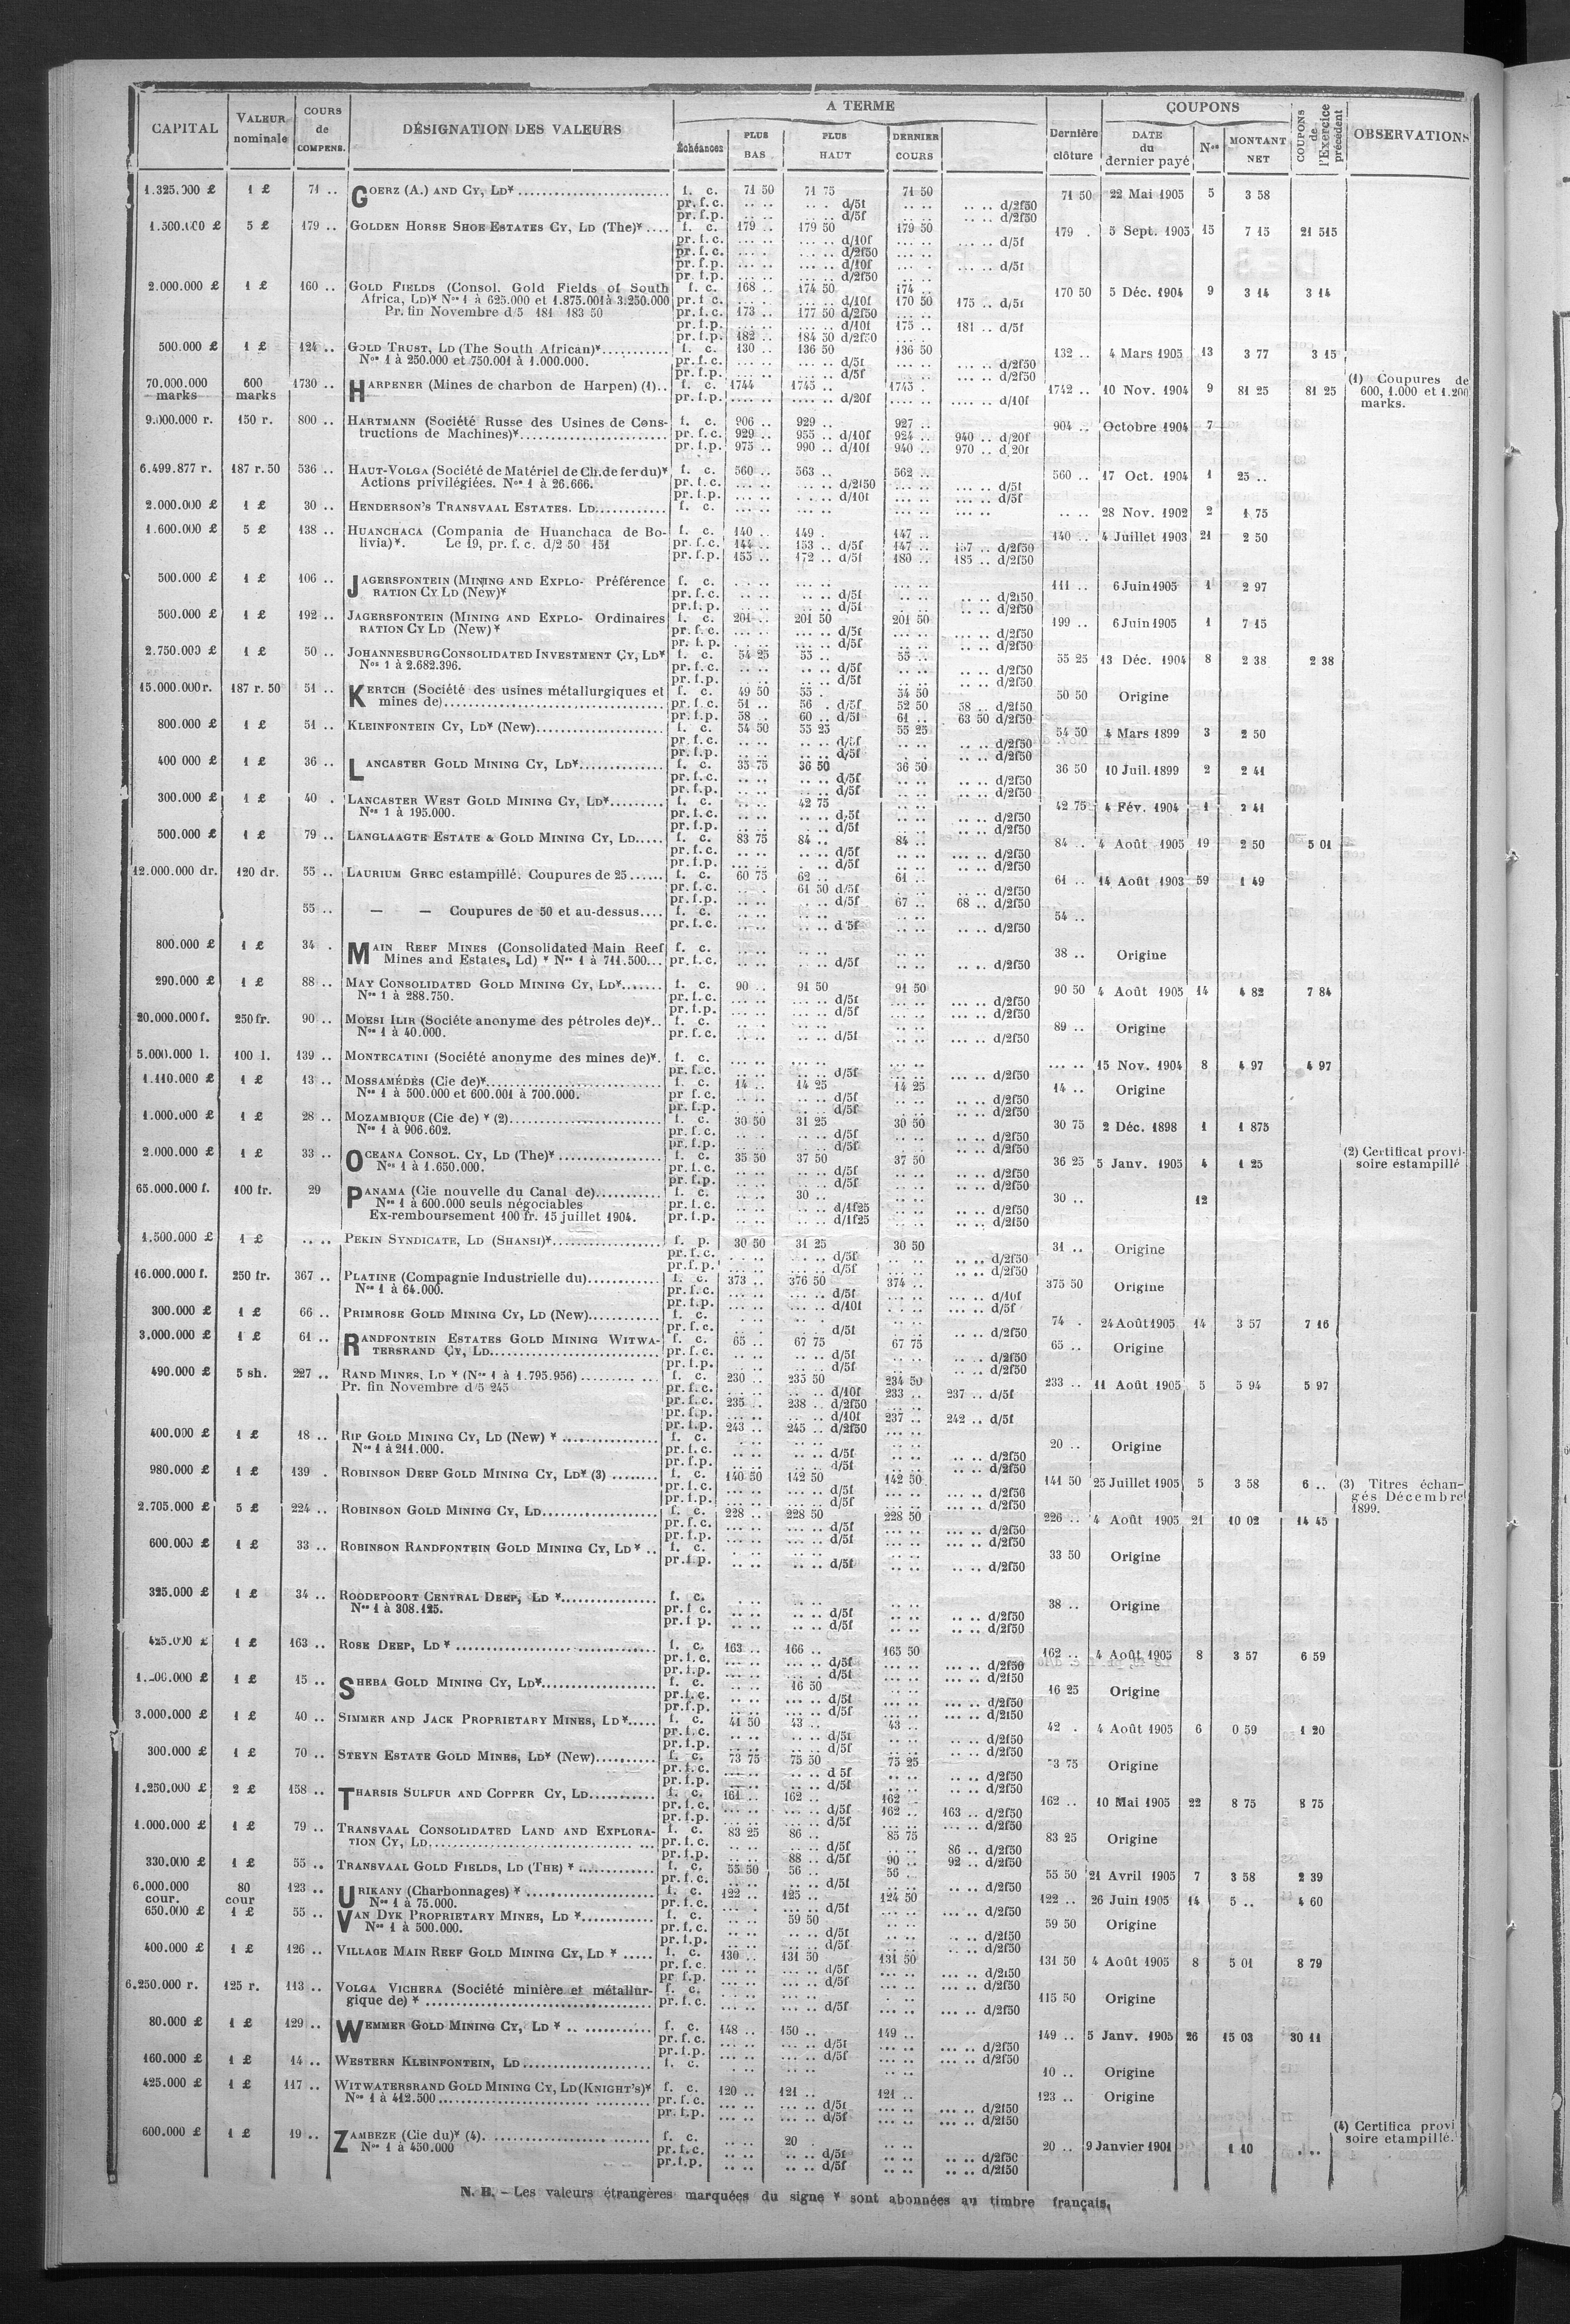 CAPITAL VALEUR nominale COURS de COMPENS. DÉSIGNATION DES VALEURS A TERME Échéances PLUS BAS PLUS HAUT DERNIER COURS Dernière clôture COUPONS DATE du dernier payé Nos MONTANT NET COUPONS de l'Exercice précédent OBSERVATIONS
1.325.000 £ 1 £ 71 .. GOERZ (A.) AND CY, LD¥ f. c. 71 50 71 75 71 50 71 50 22 Mai 1905 5 3 58
pr. f. c. .. .. .. . d/5f .. .. .. .. d/2f50
pr. f. p. .. .. .. .. d/5f .. .. .. .. d/2f50
5 £ 179 .. GOLDEN HORSE SHOE ESTATES CY, LD (The)¥ .... f. c. 179 .. 179 50 179 50 179 . 5 Sept. 1905 15 7 15 21 515
pr. f. c. ... .. ... .. d/10f ... .. ... .. d/5f
pr. f. c. ... .. d/2f50
pr. f. p. ... .. ... .. d/10f ... .. d/5f
pr. f. p. ... .. ... .. d/2f50
2.000.000 £ 1 £ 160 .. GOLD FIELDS (Consol. Gold Fields of South f. c. 168 .. 174 50 174 .. 170 50 5 Déc. 1904 9 3 14 3 14
Africa, LD)¥ Nos 1 à 625.000 et 1.875.001 à 3.250.000 pr. f. c. ... .. ... .. d/10f 170 50 175 .. d/5f
Pr. fin Novembre d/5 181 183 50 173 .. 177 50 d/2f50
pr. f. p. ... .. d/10f 175 .. 181 .. d/5f
pr. f. p. 182 .. 184 50 d/2f50
500.000 £ 1 £ 124 .. GOLD TRUST, LD (The South African)¥ f. c. 130 .. 136 50 136 50 132 .. 4 Mars 1905 13 3 77 3 15
Nos 1 à 250.000 et 750.001 à 1.000.000. pr. f. c. ... .. d/5f ... .. d/2f50
pr. f. p. ... .. d/5f ... .. d/2f50
70.000.000 marks 600 marks 1730 .. HARPENER (Mines de charbon de Harpen) (1).. f. c. 1744 1745 .. 1745 .. 1742 .. 10 Nov. 1904 9 81 25 81 25 (1) Coupures de 600, 1.000 et 1.200 marks.
pr. f. p. .... .. .... .. d/20f .... .. d/10f
9.000.000 r. 150 r. 800 .. HARTMANN (Société Russe des Usines de Cons- f. c. 906 .. 929 .. 927 .. 904 .. Octobre 1904 7
tructions de Machines)¥ pr. f. c. 929 .. 955 .. d/10f 924 .. 940 .. d/20f
pr. f. p. 975 .. 990 .. d/10f 940 .. 970 .. d/20f
6.499.877 r. 187 r. 50 536 .. HAUT-VOLGA (Société de Matériel de Ch. de fer du)¥ f. c. 560 .. 563 .. 562 .. 560 .. 17 Oct. 1904 1 25 ..
Actions privilégiées. Nos 1 à 26.666. pr. f. c. ... .. d/2f50 ... .. d/5f
pr. f. p. ... .. d/10f ... .. d/5f
2.000.000 £ 1 £ 30 .. HENDERSON'S TRANSVAAL ESTATES. LD f. c. ... .. 28 Nov. 1902 2 1 75
1.600.000 £ 5 £ 138 .. HUANCHACA (Compania de Huanchaca de Bo- f. c. 140 .. 149 . 147 .. 140 .. 4 Juillet 1903 21 2 50
livia)¥. Le 19, pr. f. c. d/2 50 151 pr. f. c. 144 .. 153 .. d/5f 147 .. 157 .. d/2f50
pr. f. p. 155 .. 172 .. d/5f 180 .. 185 .. d/2f50
500.000 £ 1 £ 106 .. JAGERSFONTEIN (MINING AND EXPLO- Préférence f. c. ... .. 111 .. 6 Juin 1905 1 2 97
RATION CY LD (New)¥ pr. f. c. d/5f d/2f50
pr. f. p. d/5f d/2f50
500.000 £ 1 £ 192 .. JAGERSFONTEIN (MINING AND EXPLO- Ordinaires f. c. 201 .. 201 50 201 50 199 .. 6 Juin 1905 1 7 15
RATION CY LD (New)¥ pr. f. c. d/5f d/2f50
pr. f. p. d/5f d/2f50
2.750.000 £ 1 £ 50 .. JOHANNESBURG CONSOLIDATED INVESTMENT CY, LD¥ f. c. 54 25 55 .. 55 .. 55 25 13 Déc. 1904 8 2 38 2 38
Nos 1 à 2.682.396. pr. f. c. d/5f d/2f50
pr. f. p. d/5f d/2f50
15.000.000 r. 187 r. 50 51 .. KERTCH (Société des usines métallurgiques et f. c. 49 50 55 . 54 50 50 50 Origine
mines de) pr. f. c. 51 .. 56 . d/5f 52 50 58 .. d/2f50
pr. f. p. 58 .. 60 .. d/5f 61 .. 63 50 d/2f50
800.000 £ 1 £ 51 .. KLEINFONTEIN CY, LD¥ (New) f. c. 54 50 55 25 55 25 54 50 4 Mars 1899 3 2 50
pr. f. c. d/5f d/2f50
pr. f. p. d/5f d/2f50
400 000 £ 1 £ 36 .. LANCASTER GOLD MINING CY, LD¥ f. c. 35 75 36 50 36 50 36 50 10 Juil. 1899 2 2 41
pr. f. c. d/5f d/2f50
pr. f. p. d/5f d/2f50
300.000 £ 1 £ 40 . LANCASTER WEST GOLD MINING CY, LD¥ f. c. .. .. 42 75 42 75 4 Fév. 1904 1 2 41
Nos 1 à 195.000. pr. f. c. d/5f d/2f50
pr. f. p. d/5f d/2f50
500.000 £ 1 £ 79 .. LANGLAAGTE ESTATE & GOLD MINING CY, LD f. c. 83 75 84 .. 84 .. 84 .. 4 Août 1905 19 2 50 5 01
pr. f. c. d/5f d/2f50
pr. f. p. d/5f d/2f50
12.000.000 dr. 120 dr. 55 .. LAURIUM GREC estampillé. Coupures de 25 f. c. 60 75 62 .. 61 .. 61 .. 14 Août 1903 59 1 49
pr. f. c. 61 50 d/5f d/2f50
pr. f. p. d/5f 67 .. 68 .. d/2f50
55 .. — — Coupures de 50 et au-dessus.... f. c. 54 ..
pr. f. c. d 5f d/2f50
800.000 £ 1 £ 34 . MAIN REEF MINES (Consolidated Main Reef f. c. 38 .. Origine
Mines and Estates, Ld) ¥ Nos 1 à 711.500... pr. f. c. d/5f d/2f50
290.000 £ 1 £ 88 .. MAY CONSOLIDATED GOLD MINING CY, LD¥ f. c. 90 .. 91 50 91 50 90 50 4 Août 1905 14 4 82 7 84
Nos 1 à 288.750. pr. f. c. d/5f d/2f50
pr. f. p. d/5f d/2f50
20.000.000 f. 250 fr. 90 .. MOESI ILIR (Sociéte anonyme des pétroles de)¥.. f. c. 89 .. Origine
Nos 1 à 40.000. pr. f. c. d/5f d/2f50
5.000.000 l. 100 l. 139 .. MONTECATINI (Société anonyme des mines de)¥. f. c. 15 Nov. 1904 8 4 97 4 97
pr. f. c. d/5f d/2f50
1.110.000 £ 1 £ 13 .. MOSSAMÉDÈS (Cie de)¥ f. c. 14 .. 14 25 14 25 14 .. Origine
Nos 1 à 500.000 et 600.001 à 700.000. pr. f. c. d/5f d/2f50
pr. f. p. d/5f d/2f50
1.000.000 £ 1 £ 28 .. MOZAMBIQUE (Cie de) ¥ (2) f. c. 30 50 31 25 30 50 30 75 2 Déc. 1898 1 1 875
Nos 1 à 906.602. pr. f. c. d/5f d/2f50
pr. f. p. d/5f d/2f50
2.000.000 £ 1 £ 33 .. OCEANA CONSOL. CY, LD (The)¥ f. c. 35 50 37 50 37 50 36 25 5 Janv. 1905 4 1 25 (2) Certificat provi- soire estampillé
Nos 1 à 1.650.000. pr. f. c. d/5f d/2f50
pr. f. p. d/5f d/2f50
65.000.000 f. 100 fr. 29 PANAMA (Cie nouvelle du Canal de) f. c. 30 .. 30 .. 12
Nos 1 à 600.000 seuls négociables pr. f. c. d/1f25 d/2f50
Ex-remboursement 100 fr. 15 juillet 1904. pr. f. p. d/1f25 d/2f50
1.500.000 £ 1 £ .. .. PEKIN SYNDICATE, LD (SHANSI)¥ f. p. 30 50 31 25 30 50 31 .. Origine
pr. f. c. d/5f d/2f50
pr. f. p. d/5f d/2f50
16.000.000 f. 250 fr. 367 .. PLATINE (Compagnie Industrielle du) f. c. 373 .. 376 50 374 .. 375 50 Origine
Nos 1 à 64.000. pr. f. c. d/5f d/10f
pr. f. p. d/10f d/5f
300.000 £ 1 £ 66 .. PRIMROSE GOLD MINING CY, LD (New) f. c. 74 . 24 Août 1905 14 3 57 7 16
pr. f. c. d/5f d/2f50
3.000.000 £ 1 £ 61 .. RANDFONTEIN ESTATES GOLD MINING WITWA- f. c. 65 .. 67 75 67 75 65 .. Origine
TERSRAND CY, LD pr. f. c. d/5f d/2f50
pr. f. p. d/5f d/2f50
490.000 £ 5 sh. 227 .. RAND MINES, LD ¥ (Nos 1 à 1.795.956) f. c. 230 .. 235 50 234 50 233 .. 11 Août 1905 5 5 94 5 97
Pr. fin Novembre d/5 245 pr. f. c. d/10f 233 .. 237 .. d/5f
pr. f. c. 235 .. 238 .. d/2f50
pr. f. p. d/10f 237 .. 242 .. d/5f
pr. f. p. 243 .. 245 .. d/2f50
400.000 £ 1 £ 18 .. RIP GOLD MINING CY, LD (New) ¥ f. c. 20 .. Origine
Nos 1 à 211.000. pr. f. c. d/5f d/2f50
pr. f. p. d/5f d/2f50
980.000 £ 1 £ 139 . ROBINSON DEEP GOLD MINING CY, LD¥ (3) f. c. 140 50 142 50 142 50 141 50 25 Juillet 1905 5 3 58 6 .. (3) Titres échan- gés Décembre 1899.
pr. f. c. d/5f d/2f50
pr. f. p. d/5f d/2f50
2.705.000 £ 5 £ 224 .. ROBINSON GOLD MINING CY, LD f. c. 228 .. 228 50 228 50 226 .. 4 Août 1905 21 10 02 14 45
pr. f. c. d/5f d/2f50
pr. f. p. d/5f d/2f50
600.000 £ 1 £ 33 .. ROBINSON RANDFONTEIN GOLD MINING CY, LD ¥ .. f. c. 33 50 Origine
pr. f. p. d/5f d/2f50
325.000 £ 1 £ 34 .. ROODEPOORT CENTRAL DEEP, LD ¥ f. c. 38 .. Origine
Nos 1 à 308.125. pr. f. c. d/5f d/2f50
pr. f. p. d/5f d/2f50
425.000 £ 1 £ 163 .. ROSE DEEP, LD ¥ f. c. 163 .. 166 .. 165 50 162 .. 4 Août 1905 8 3 57 6 59
pr. f. c. d/5f d/2f50
pr. f. p. d/5f d/2f50
1 £ 15 .. SHEBA GOLD MINING CY, LD¥ f. c. 16 50 16 25 Origine
pr. f. c. d/5f d/2f50
pr. f. p. d/5f d/2f50
3.000.000 £ 1 £ 40 .. SIMMER AND JACK PROPRIETARY MINES, LD ¥ f. c. 41 50 43 .. 43 .. 42 . 4 Août 1905 6 0 59 1 20
pr. f. c. d/5f d/2f50
pr. f. p. d/5f d/2f50
300.000 £ 1 £ 70 .. STEYN ESTATE GOLD MINES, LD¥ (New) f. c. 73 75 75 50 75 25 3 75 Origine
pr. f. c. d 5f d/2f50
pr. f. p. d/5f d/2f50
1.250.000 £ 2 £ 158 .. THARSIS SULFUR AND COPPER CY, LD f. c. 161 .. 162 .. 162 .. 162 .. 10 Mai 1905 22 8 75 8 75
pr. f. c. d/5f 162 .. 163 .. d/2f50
pr. f. p. d/5f d/2f50
1.000.000 £ 1 £ 79 .. TRANSVAAL CONSOLIDATED LAND AND EXPLORA- f. c. 83 25 86 .. 85 75 83 25 Origine
TION CY, LD pr. f. c. d/5f 86 .. d/2f50
pr. f. p. 88 .. d/5f 90 .. 92 .. d/2f50
330.000 £ 1 £ 55 .. TRANSVAAL GOLD FIELDS, LD (THE) ¥ f. c. 55 50 56 .. 56 .. 55 50 21 Avril 1905 7 3 58 2 39
pr. f. c. d/5f d/2f50
6.000.000 cour. 80 cour 123 .. URIKANY (Charbonnages) ¥ f. c. 122 .. 125 .. 124 50 122 .. 26 Juin 1905 14 5 .. 4 60
Nos 1 à 75.000. pr. f. c. d/5f d/2f50
650.000 £ 1 £ 55 .. VAN DYK PROPRIETARY MINES, LD ¥ f. c. 59 50 59 50 Origine
Nos 1 à 500.000. pr. f. c. d/5f d/2f50
pr. f. p. d/5f d/2f50
400.000 £ 1 £ 126 .. VILLAGE MAIN REEF GOLD MINING CY, LD ¥ f. c. 130 .. 131 50 131 50 131 50 4 Août 1905 8 5 01 8 79
pr. f. c. d/5f d/2f50
pr f.p. d/5f d/2f50
6.250.000 r. 125 r. 113 .. VOLGA VICHERA (Société minière et métallur- f. c. 115 50 Origine
gique de) ¥ pr. f. c. d/5f d/2f50
80.000 £ 1 £ 129 .. WEMMER GOLD MINING CY, LD ¥ f. c. 148 .. 150 .. 149 .. 149 .. 5 Janv. 1905 26 15 03 30 11
pr. f. c. d/5f d/2f50
pr. f. p. d/5f d/2f50
160.000 £ 1 £ 14 .. WESTERN KLEINFONTEIN, LD f. c. 10 .. Origine
425.000 £ 1 £ 117 .. WITWATERSRAND GOLD MINING CY, LD (KNIGHT'S)¥ f. c. 120 .. 121 .. 121 .. 123 .. Origine
Nos 1 à 412.500 pr. f. c. d/5f d/2f50
pr. f. p. d/5f d/2f50
600.000 £ 1 £ 19 .. ZAMBEZE (Cie du)¥ (4). f. c. 20 20 .. 9 Janvier 1901 1 10 (4) Certifica provi soire etampillé.
Nos 1 à 450.000 pr. f. c. d/5f d/2f50
pr. f. p. d/5f d/2f50
N. B. – Les valeurs étrangères marquées du signe ¥ sont abonnées au timbre français.